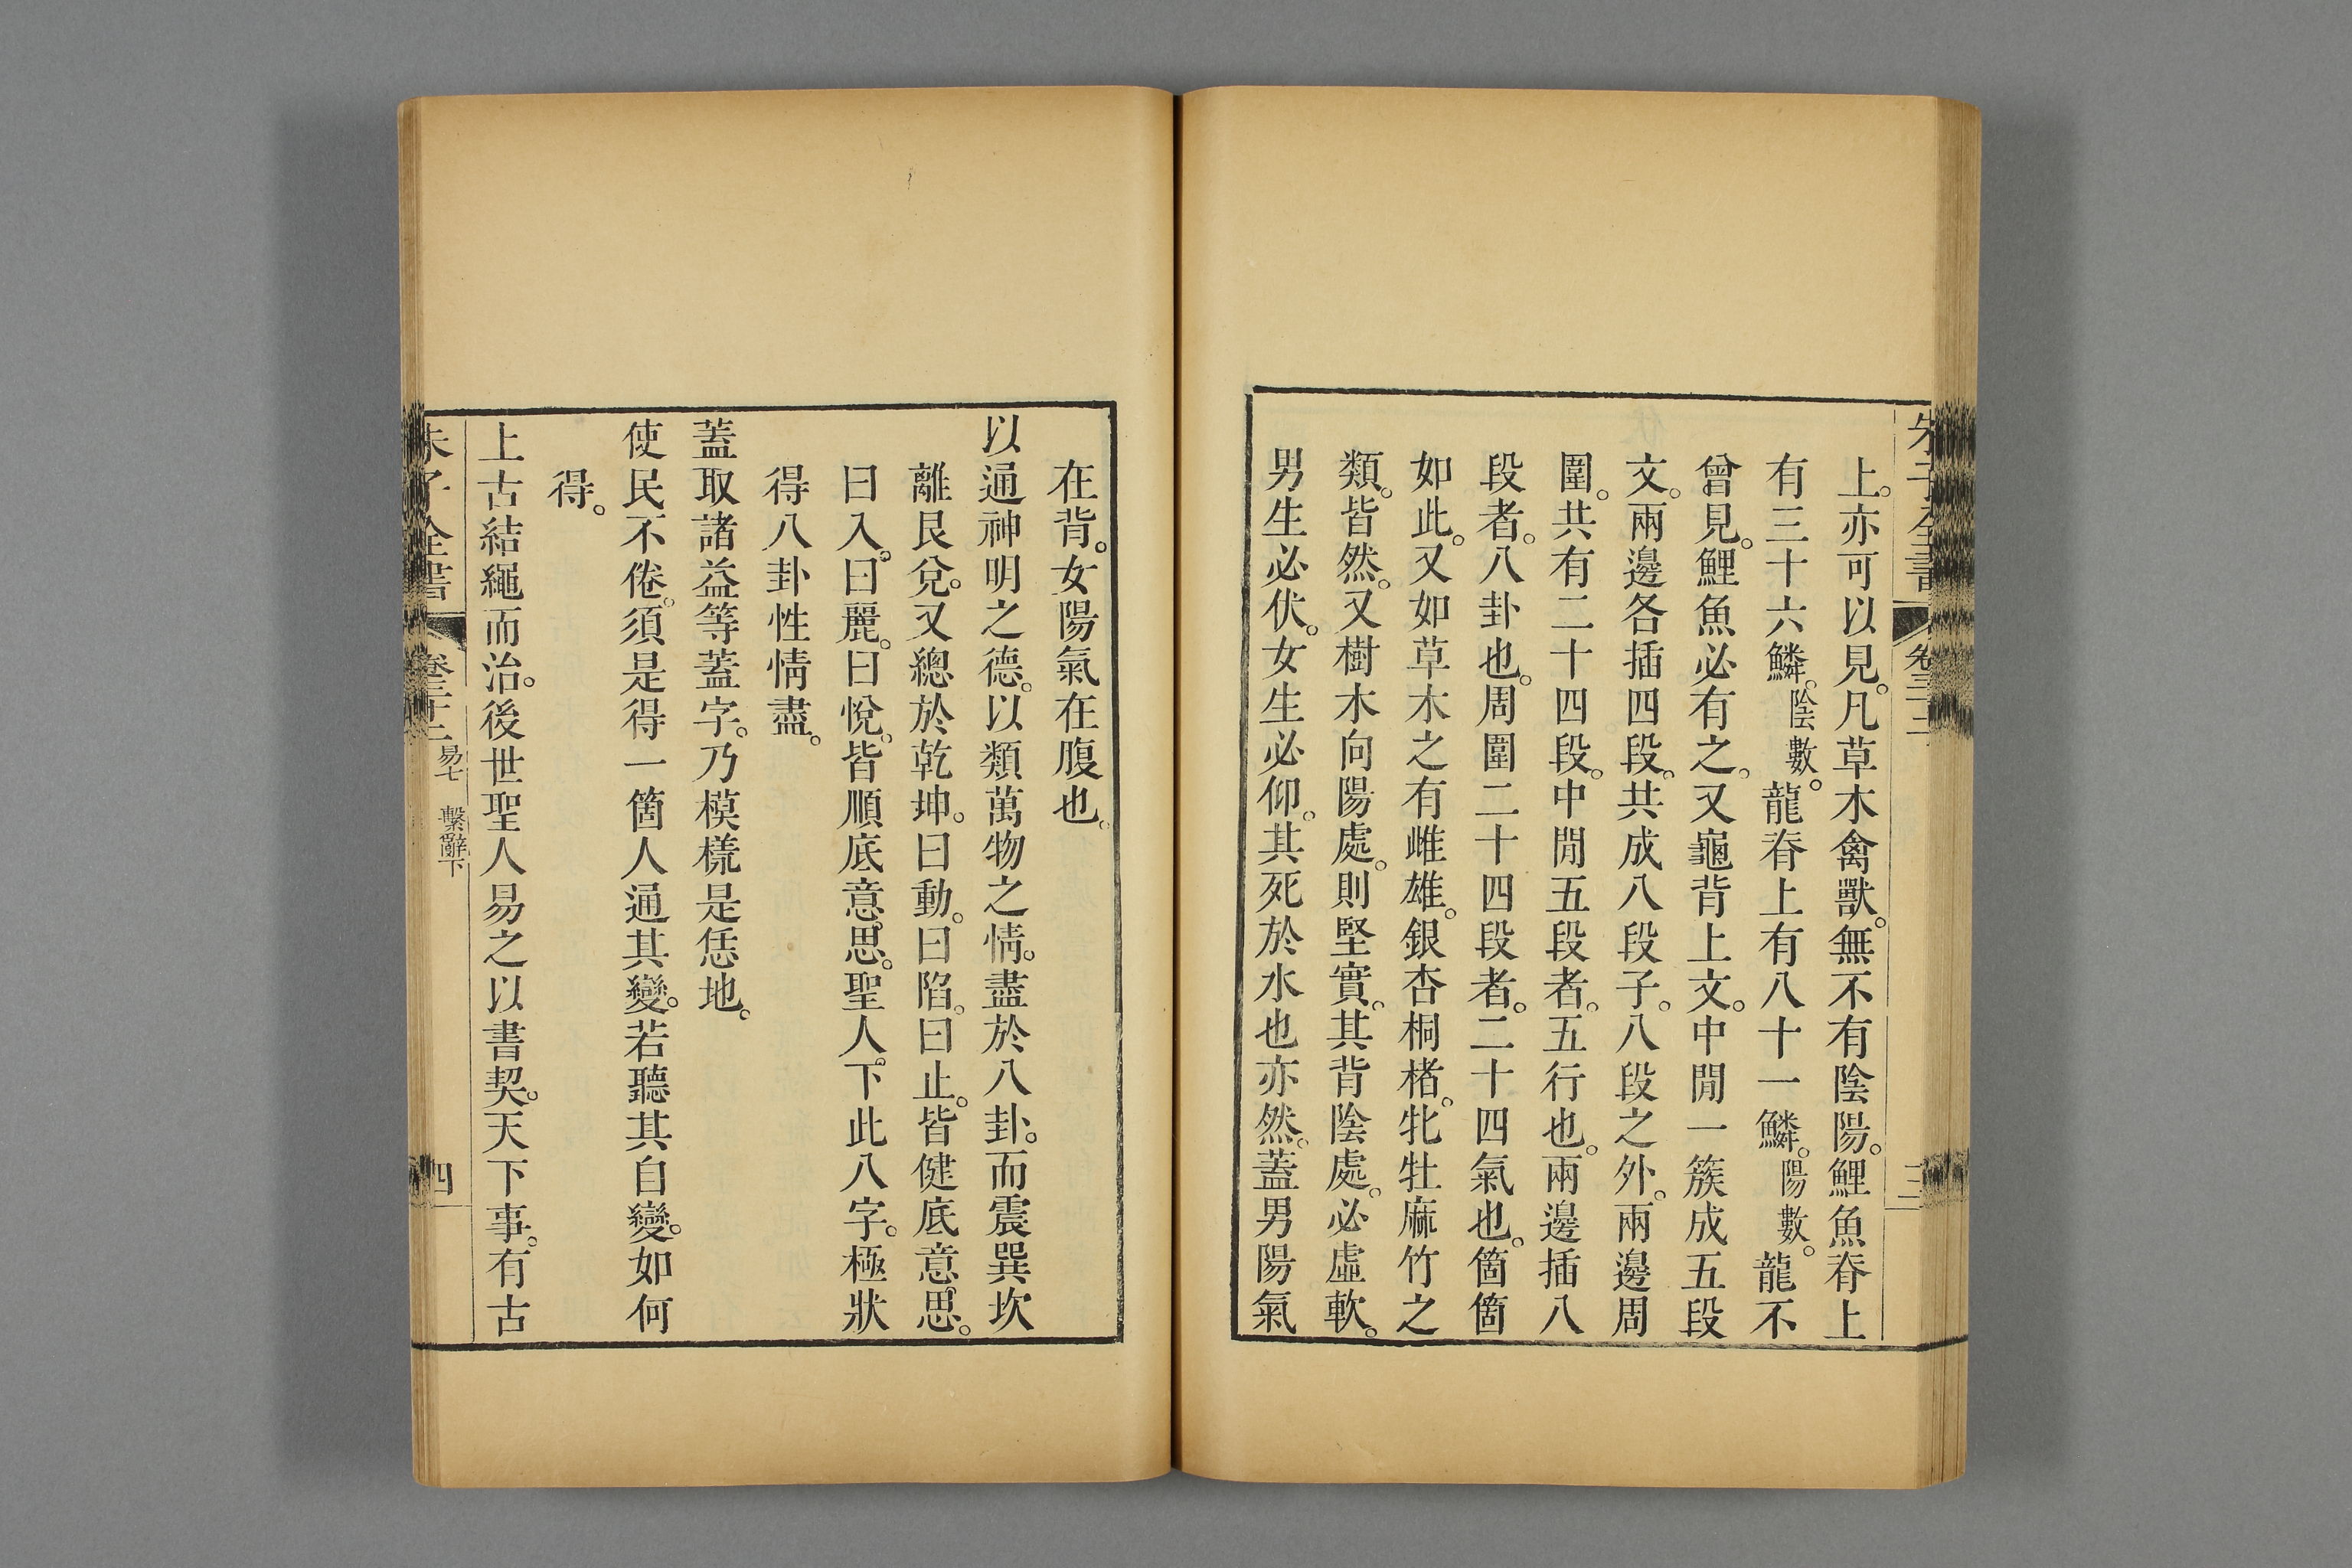 上。亦可以見。凡草木禽獸。無不有陰陽。鯉魚脊上
有三十六鱗。陰數。龍脊上有八十一鱗。陽數。龍不
曾見。鯉魚必有之。又龜背上文。中閒一簇成五段
文。兩邊各插四段。共成八段子。八段之外。兩邊周
圍。共有二十四段。中閒五段者。五行也。兩邊插八
段者。八卦也。周圍二十四段者。二十四氣也。箇箇
如此。又如草木之有雌雄。銀杏桐楮。牝牡麻竹之
類。皆然。又樹木向陽處。則堅實。其背陰處。必虛軟。
男生必伏。女生必仰。其死於水也亦然。蓋男陽氣
在背。女陽氣在腹也。
以通神明之德。以類萬物之情。盡於八卦。而震巽坎
離艮兌。又總於乾坤。曰動。曰陷。曰止。皆健底意思。
曰入。曰麗。曰悅。皆順底意思。聖人下此八字。極狀
得八卦性情盡。
蓋取諸益等蓋字。乃模樣是恁地。
使民不倦。須是得一箇人通其變。若聽其自變。如何
得。
上古結繩而治。後世聖人易之以書契。天下事。有古
朱子全書 卷三十二 易七 繫辭下 四